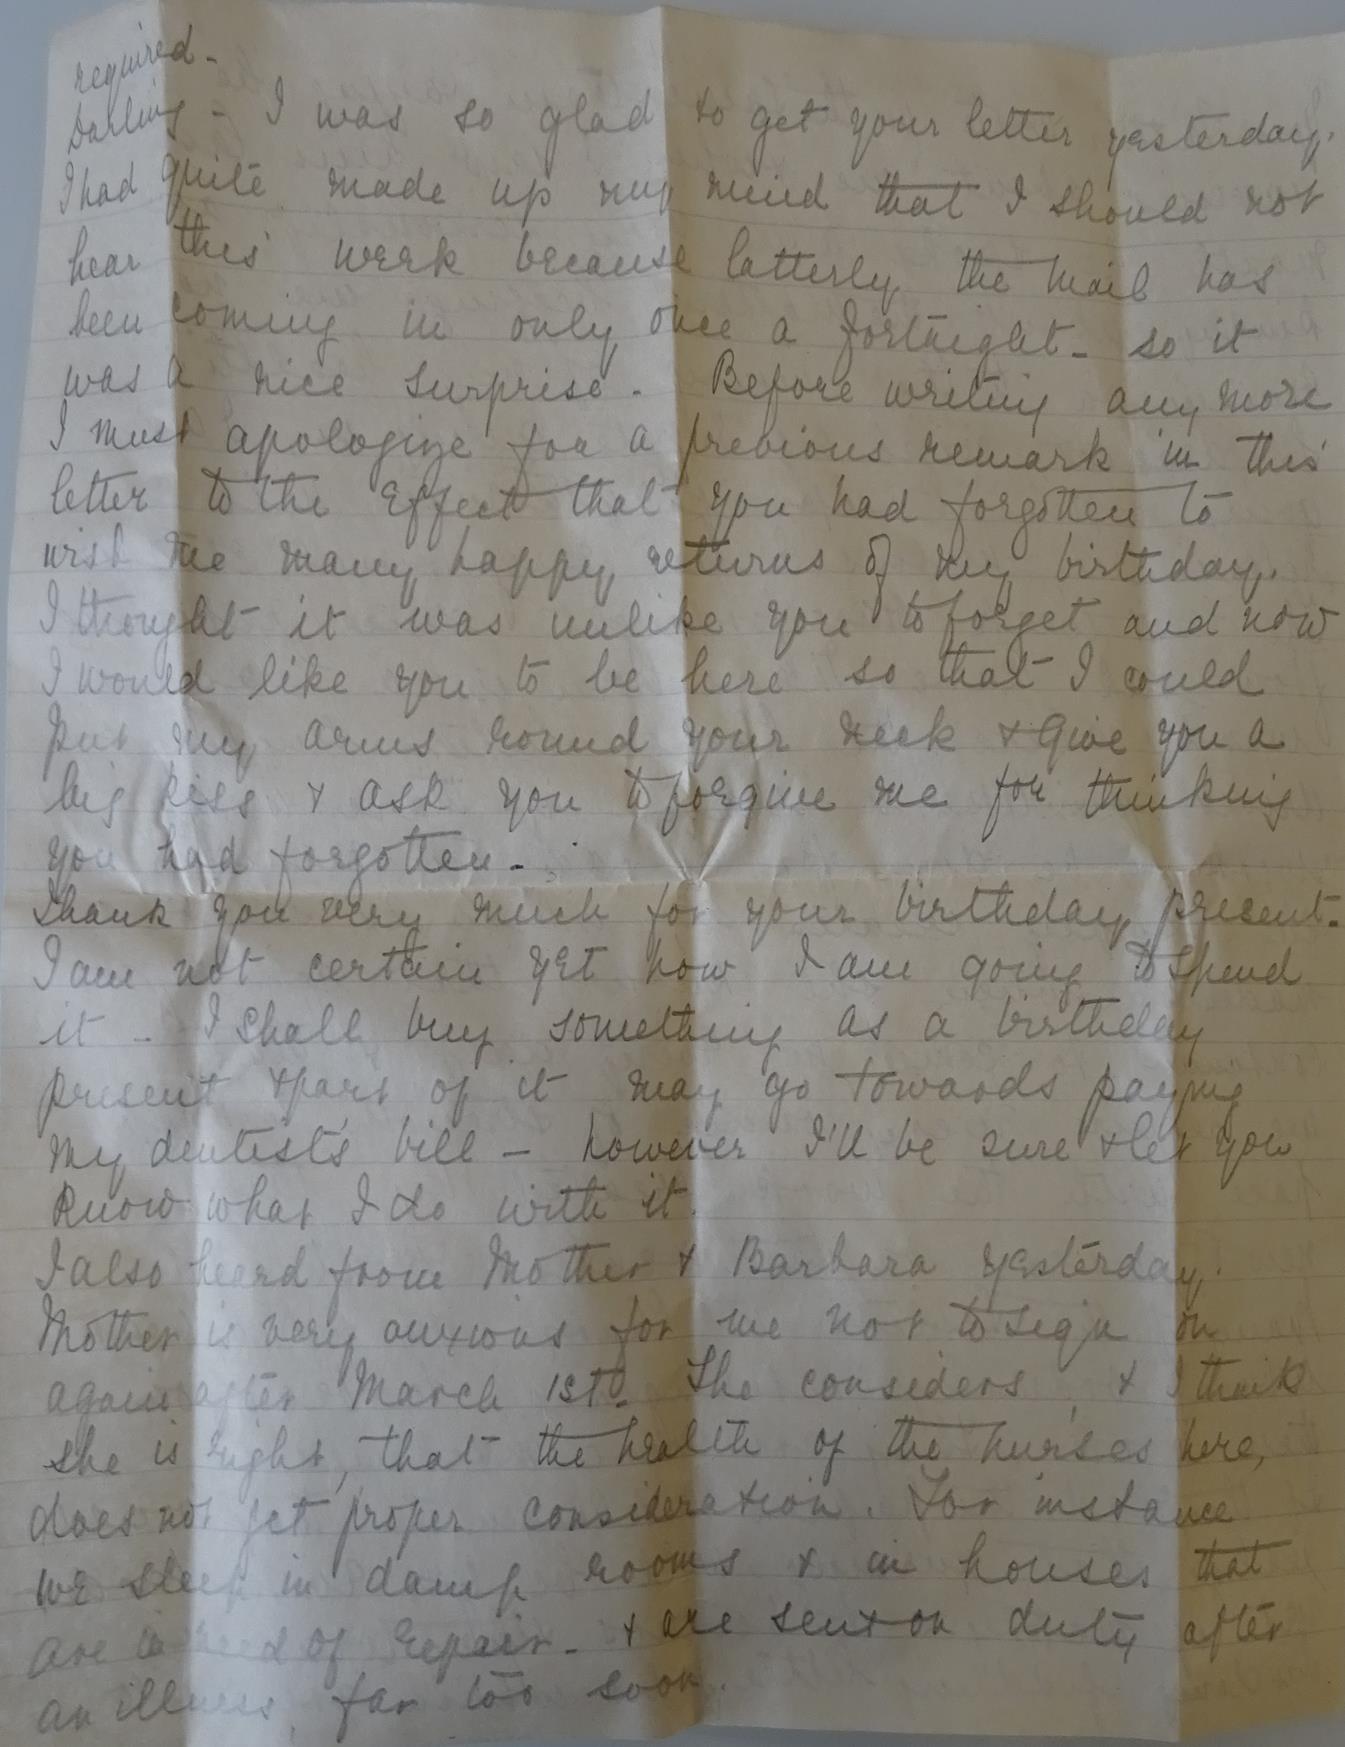 required -
Darling - I was so glad to get your letter yesterday.
I had quite made up my mind that I should not
hear this week because latterly the mail has
been coming in only once a fortnight - so it
was a nice surprise - Before writing any more
I must apologize for a previous remark in this
letter to the effect that you had forgotten to
wish me many happy returns of my birthday.
I thought it was unlike you to forget and now
I would like you to be here so that I could
put my arms round your neck + give you a
big kiss + ask you to forgive me for thinking
you had forgotten -
Thank you very much for your birthday present -
I am not certain yet how I am going to spend
it - I shall buy something as a birthday
present + part of it may go towards paying
my dentist's bill - however I'll be sure + let you
know what I do with it.
I also heard from Mother + Barbara yesterday.
Mother is very anxious for me not to sign on
again after March 1st. She considers, + I think
she is right, that the health of the nurses here,
does not get proper consideration. For instance
we sleep in damp rooms + in houses that
are in need of repair - + are sent on duty after
an illness far too soon.